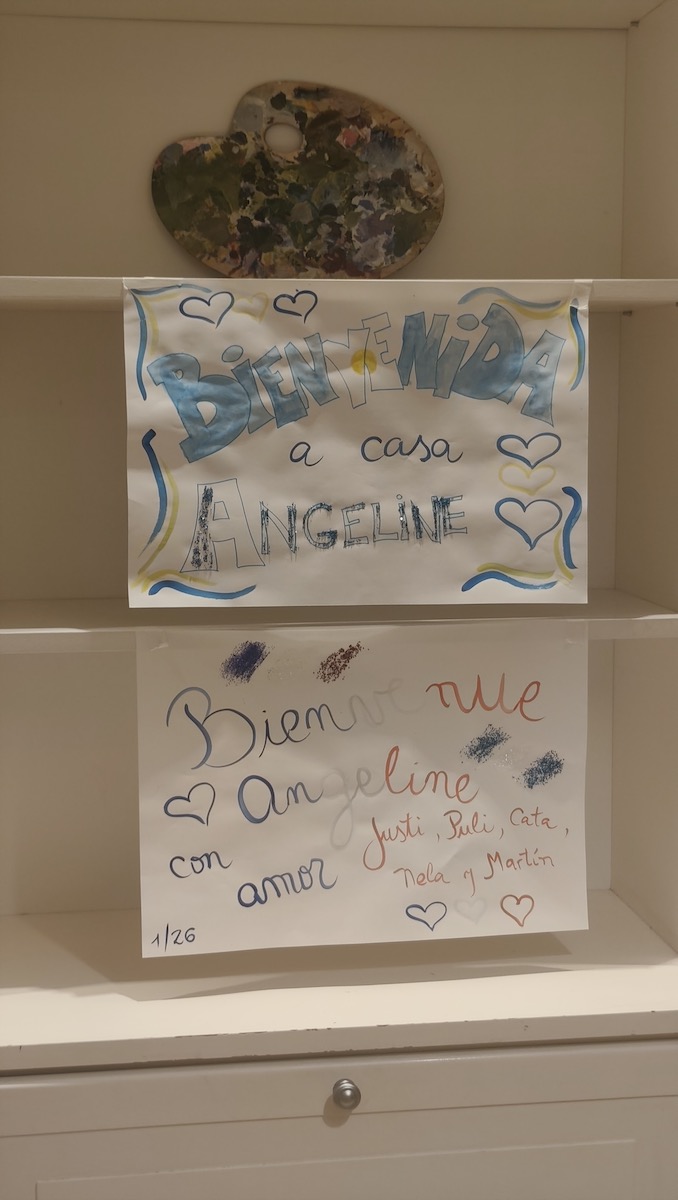 BIENVENIDA
a casa
ANGELINE
Bienvenue
Angeline
Justi, Puli, Cata,
con
Nela y Martín
amor
1/26